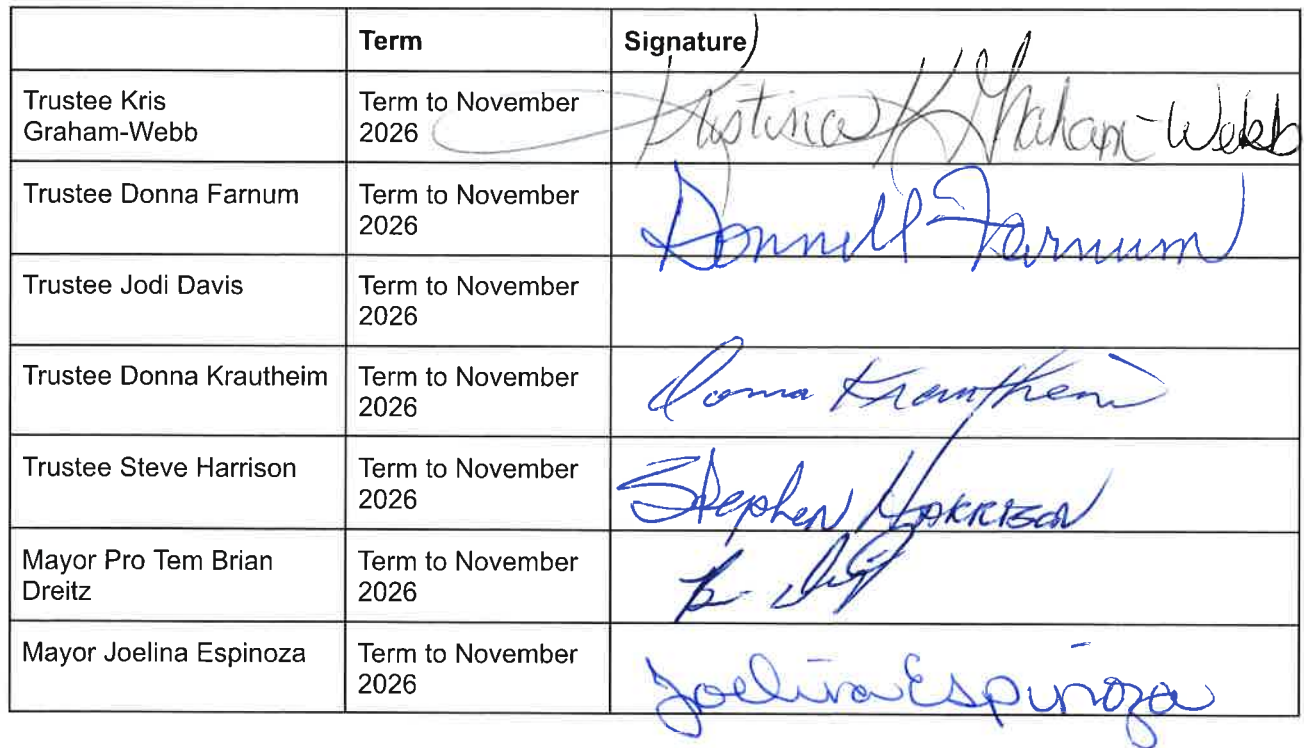 Term Signature
Trustee Kris
Graham-Webb
Term to November
2026
Kristina K Graham-Webb
Trustee Donna Farnum
Term to November
2026
Donnell Farnum
Trustee Jodi Davis
Term to November
2026
Trustee Donna Krautheim
Term to November
2026
Donna Krautheim
Trustee Steve Harrison
Term to November
2026
Stephen Harrison
Mayor Pro Tem Brian
Dreitz
Term to November
2026
Mayor Joelina Espinoza
Term to November
2026
Joelina Espinoza